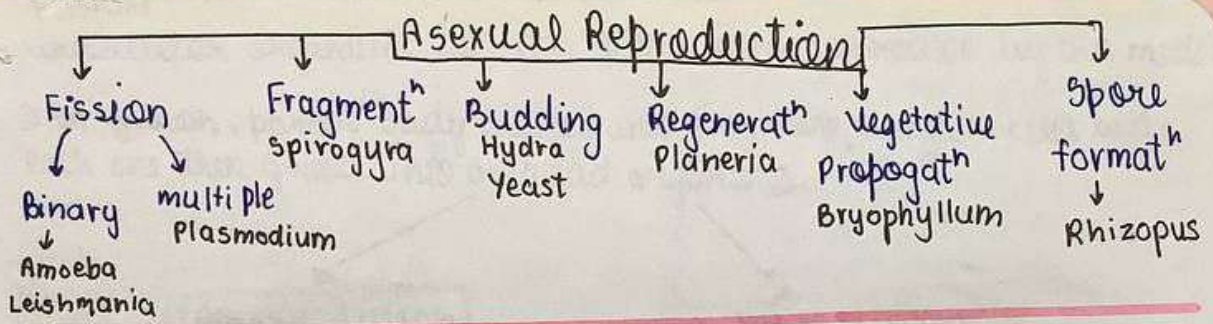 Asexual Reproduction
Fission
Binary
Amoeba
Leishmania
multiple
Plasmodium
Fragmentⁿ
Spirogyra
Budding
Hydra
Yeast
Regeneratⁿ
Planeria
Vegetative
Propogatⁿ
Bryophyllum
Spore
formatⁿ
Rhizopus